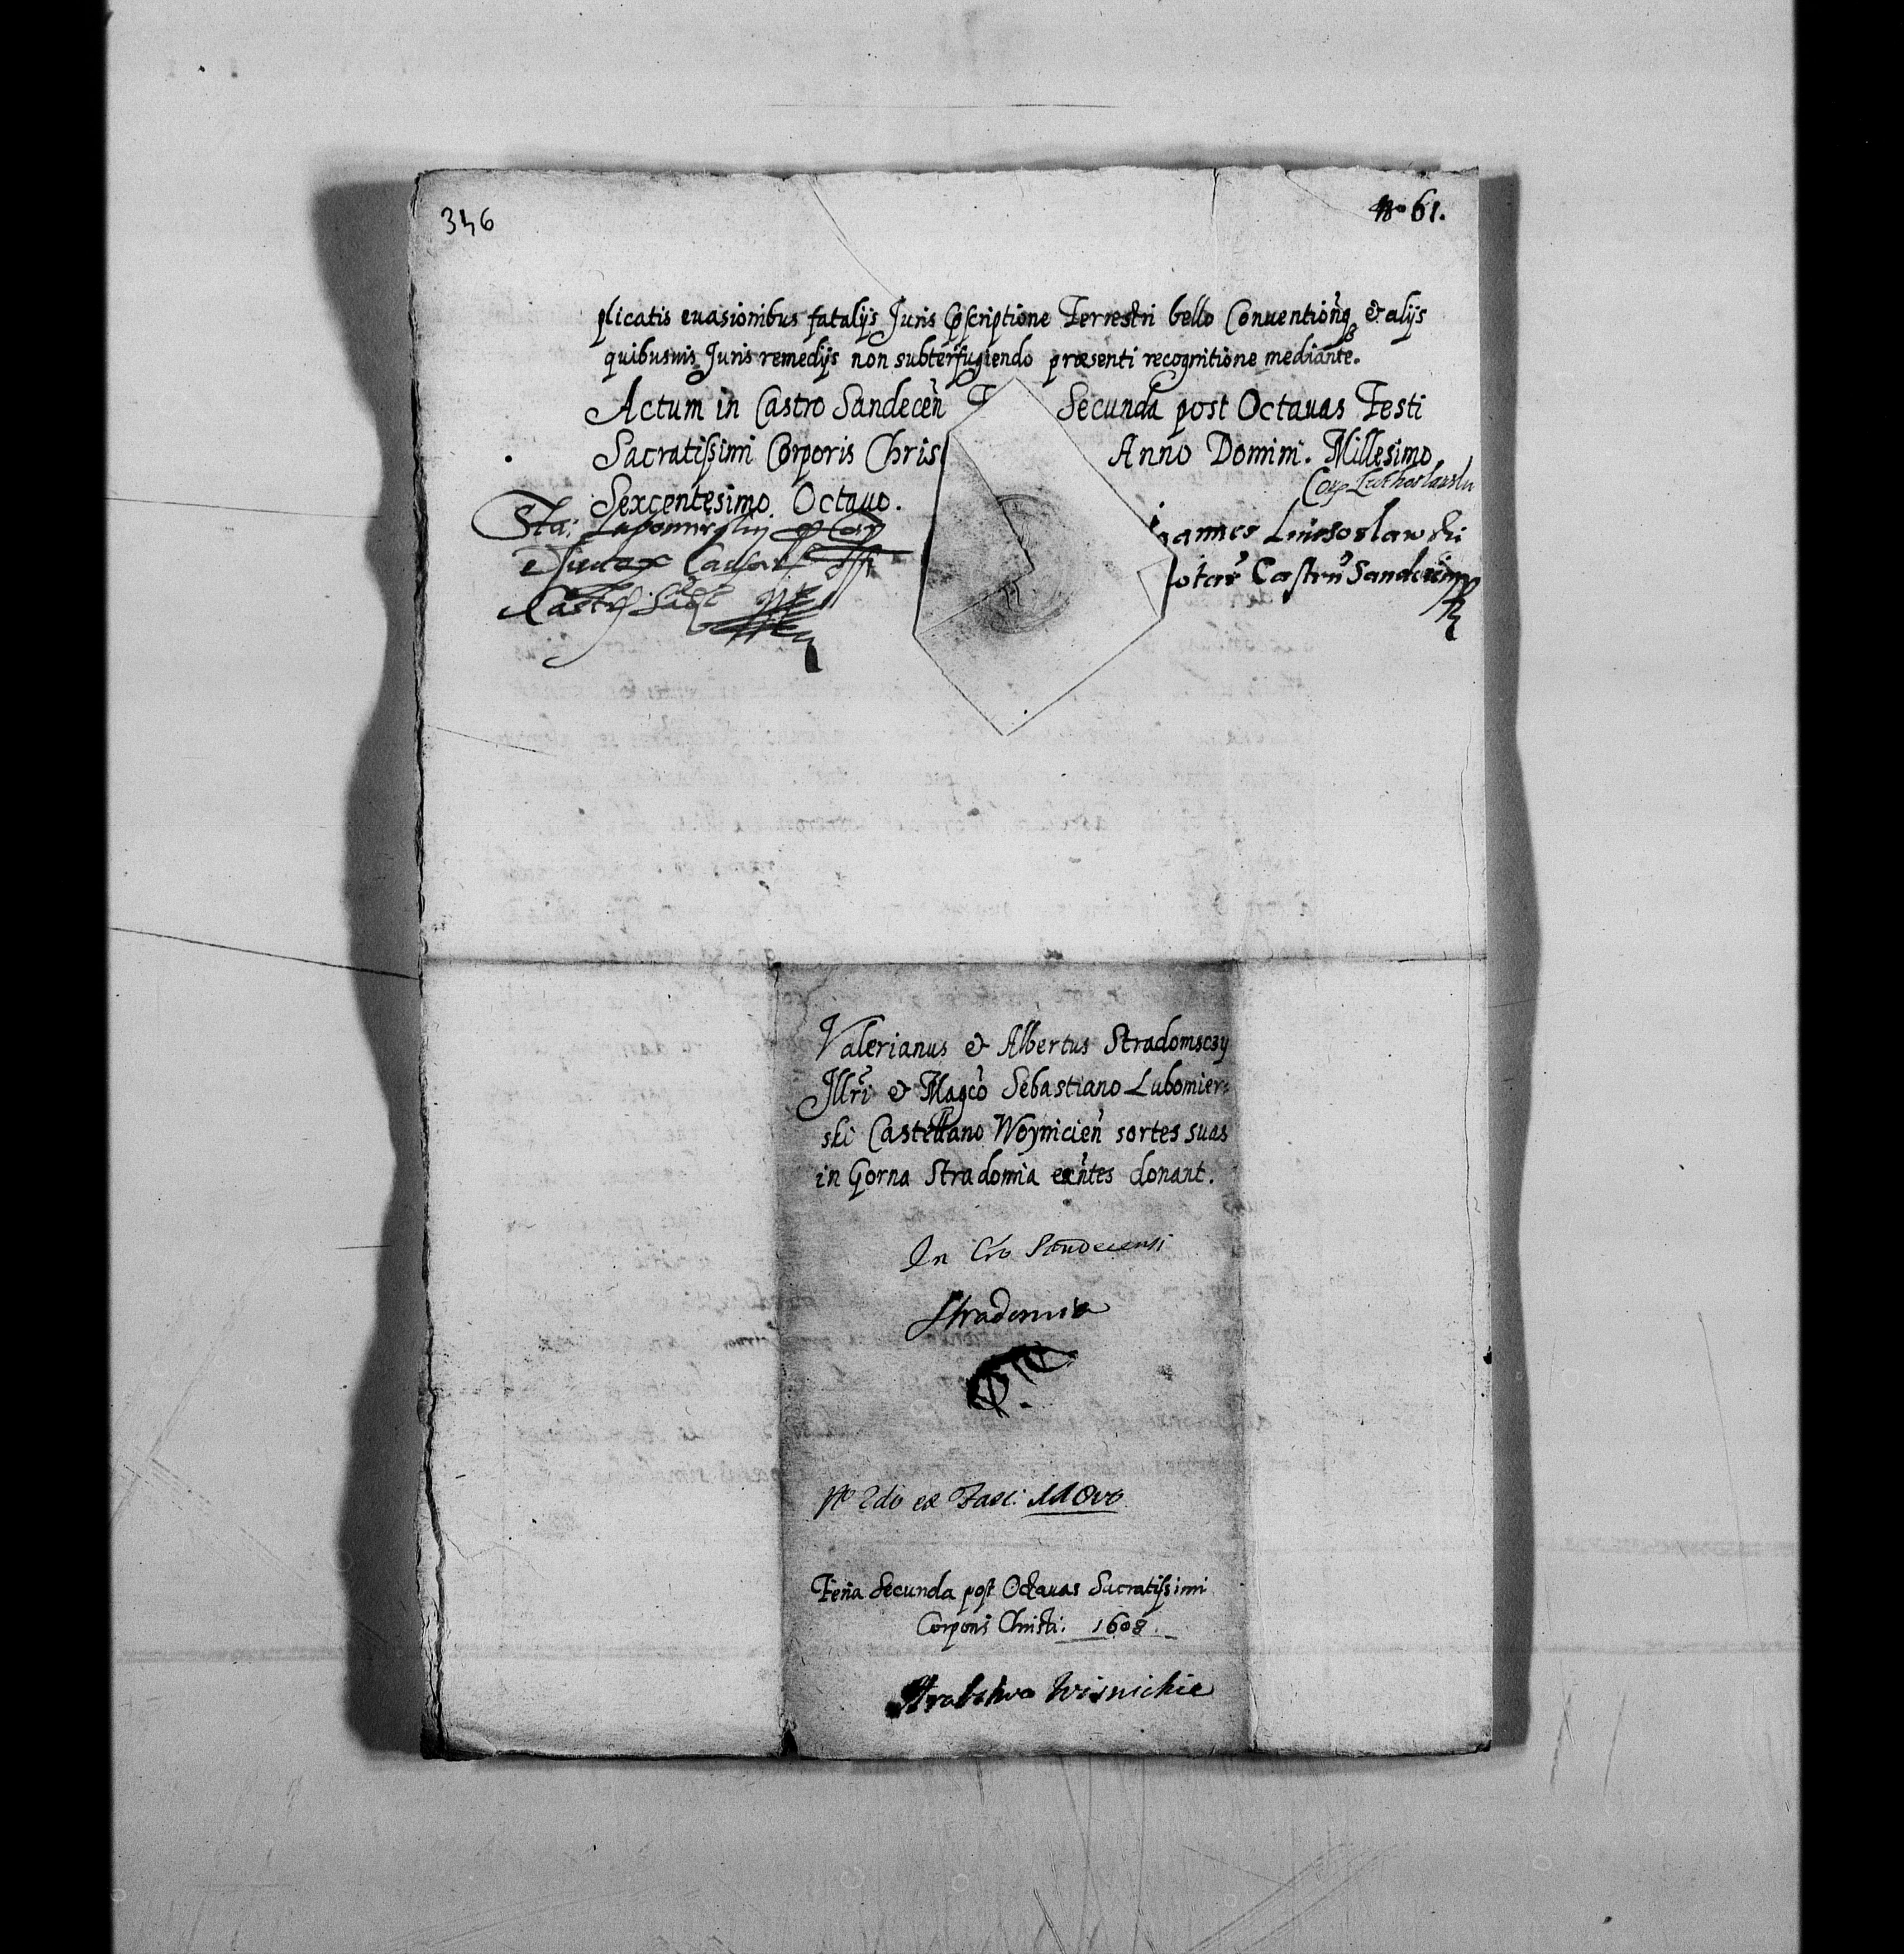 346
No 61.
plicatis euasionibus fatalijs Juris Præscriptione Terrestri bello Conuentionq & alijs
quibusuis Juris remedijs non subterfugiendo præsenti recognitione mediante.
Actum in Castro Sandecen̄ Secunda post Octauas Festi
Sacratissimi Corporis Chris Anno Domini. Millesimo
Sexcentesimo Octauo.
Corr Luthoslawski
Sta: Lubomirski
annes Luthoslawski
Castr
otar̄ Castrn̄ Sandecen
Valerianus & Albertus Stradomsczy
Illri & Magco Sebastiano Lubomier-
ski Castellano Woynicien̄ sortes suas
in Gorna Stradomia exntes donant.
In Cro Sandecensi
Stradomia
No 2do ex Fasc: 11 Ovo
Feria Secunda post Octauas Sacratissimi
Corporis Christi: 1608.
Hrabstwo Wisnickie